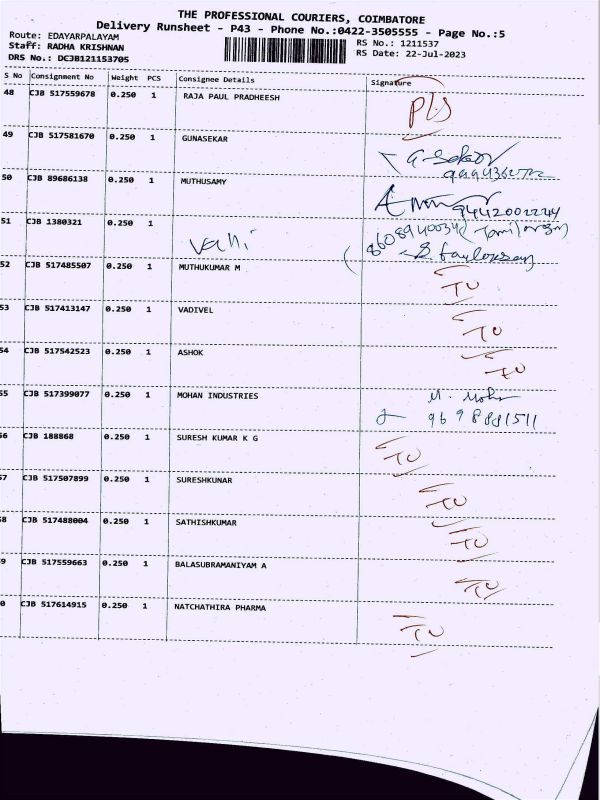 THE PROFESSIONAL COURIERS, COIMBATORE
Delivery Runsheet - P43 - Phone No.:0422-3505555 - Page No.:5
Route: EDAYARPALAYAM
Staff: RADHA KRISHNAN
DRS No.: DCJB121153705
RS No.: 1211537
RS Date: 22-Jul-2023
S No Consignment No Weight PCS Consignee Details Signature
48 CJB 517559678 0.250 1 RAJA PAUL PRADHEESH
49 CJB 517581670 0.250 1 GUNASEKAR
50 CJB 89686138 0.250 1 MUTHUSAMY
9442002244
51 CJB 1380321 0.250 1
Valli
52 CJB 517485507 0.250 1 MUTHUKUMAR M
TU
53 CJB 517413147 0.250 1 VADIVEL
TU
54 CJB 517542523 0.250 1 ASHOK
TU
55 CJB 517399077 0.250 1 MOHAN INDUSTRIES M. Mohan
9698881511
56 CJB 188868 0.250 1 SURESH KUMAR K G
TU
57 CJB 517507899 0.250 1 SURESHKUNAR
TU
58 CJB 517488004 0.250 1 SATHISHKUMAR
TU
59 CJB 517559663 0.250 1 BALASUBRAMANIYAM A
TU
0 CJB 517614915 0.250 1 NATCHATHIRA PHARMA
TU